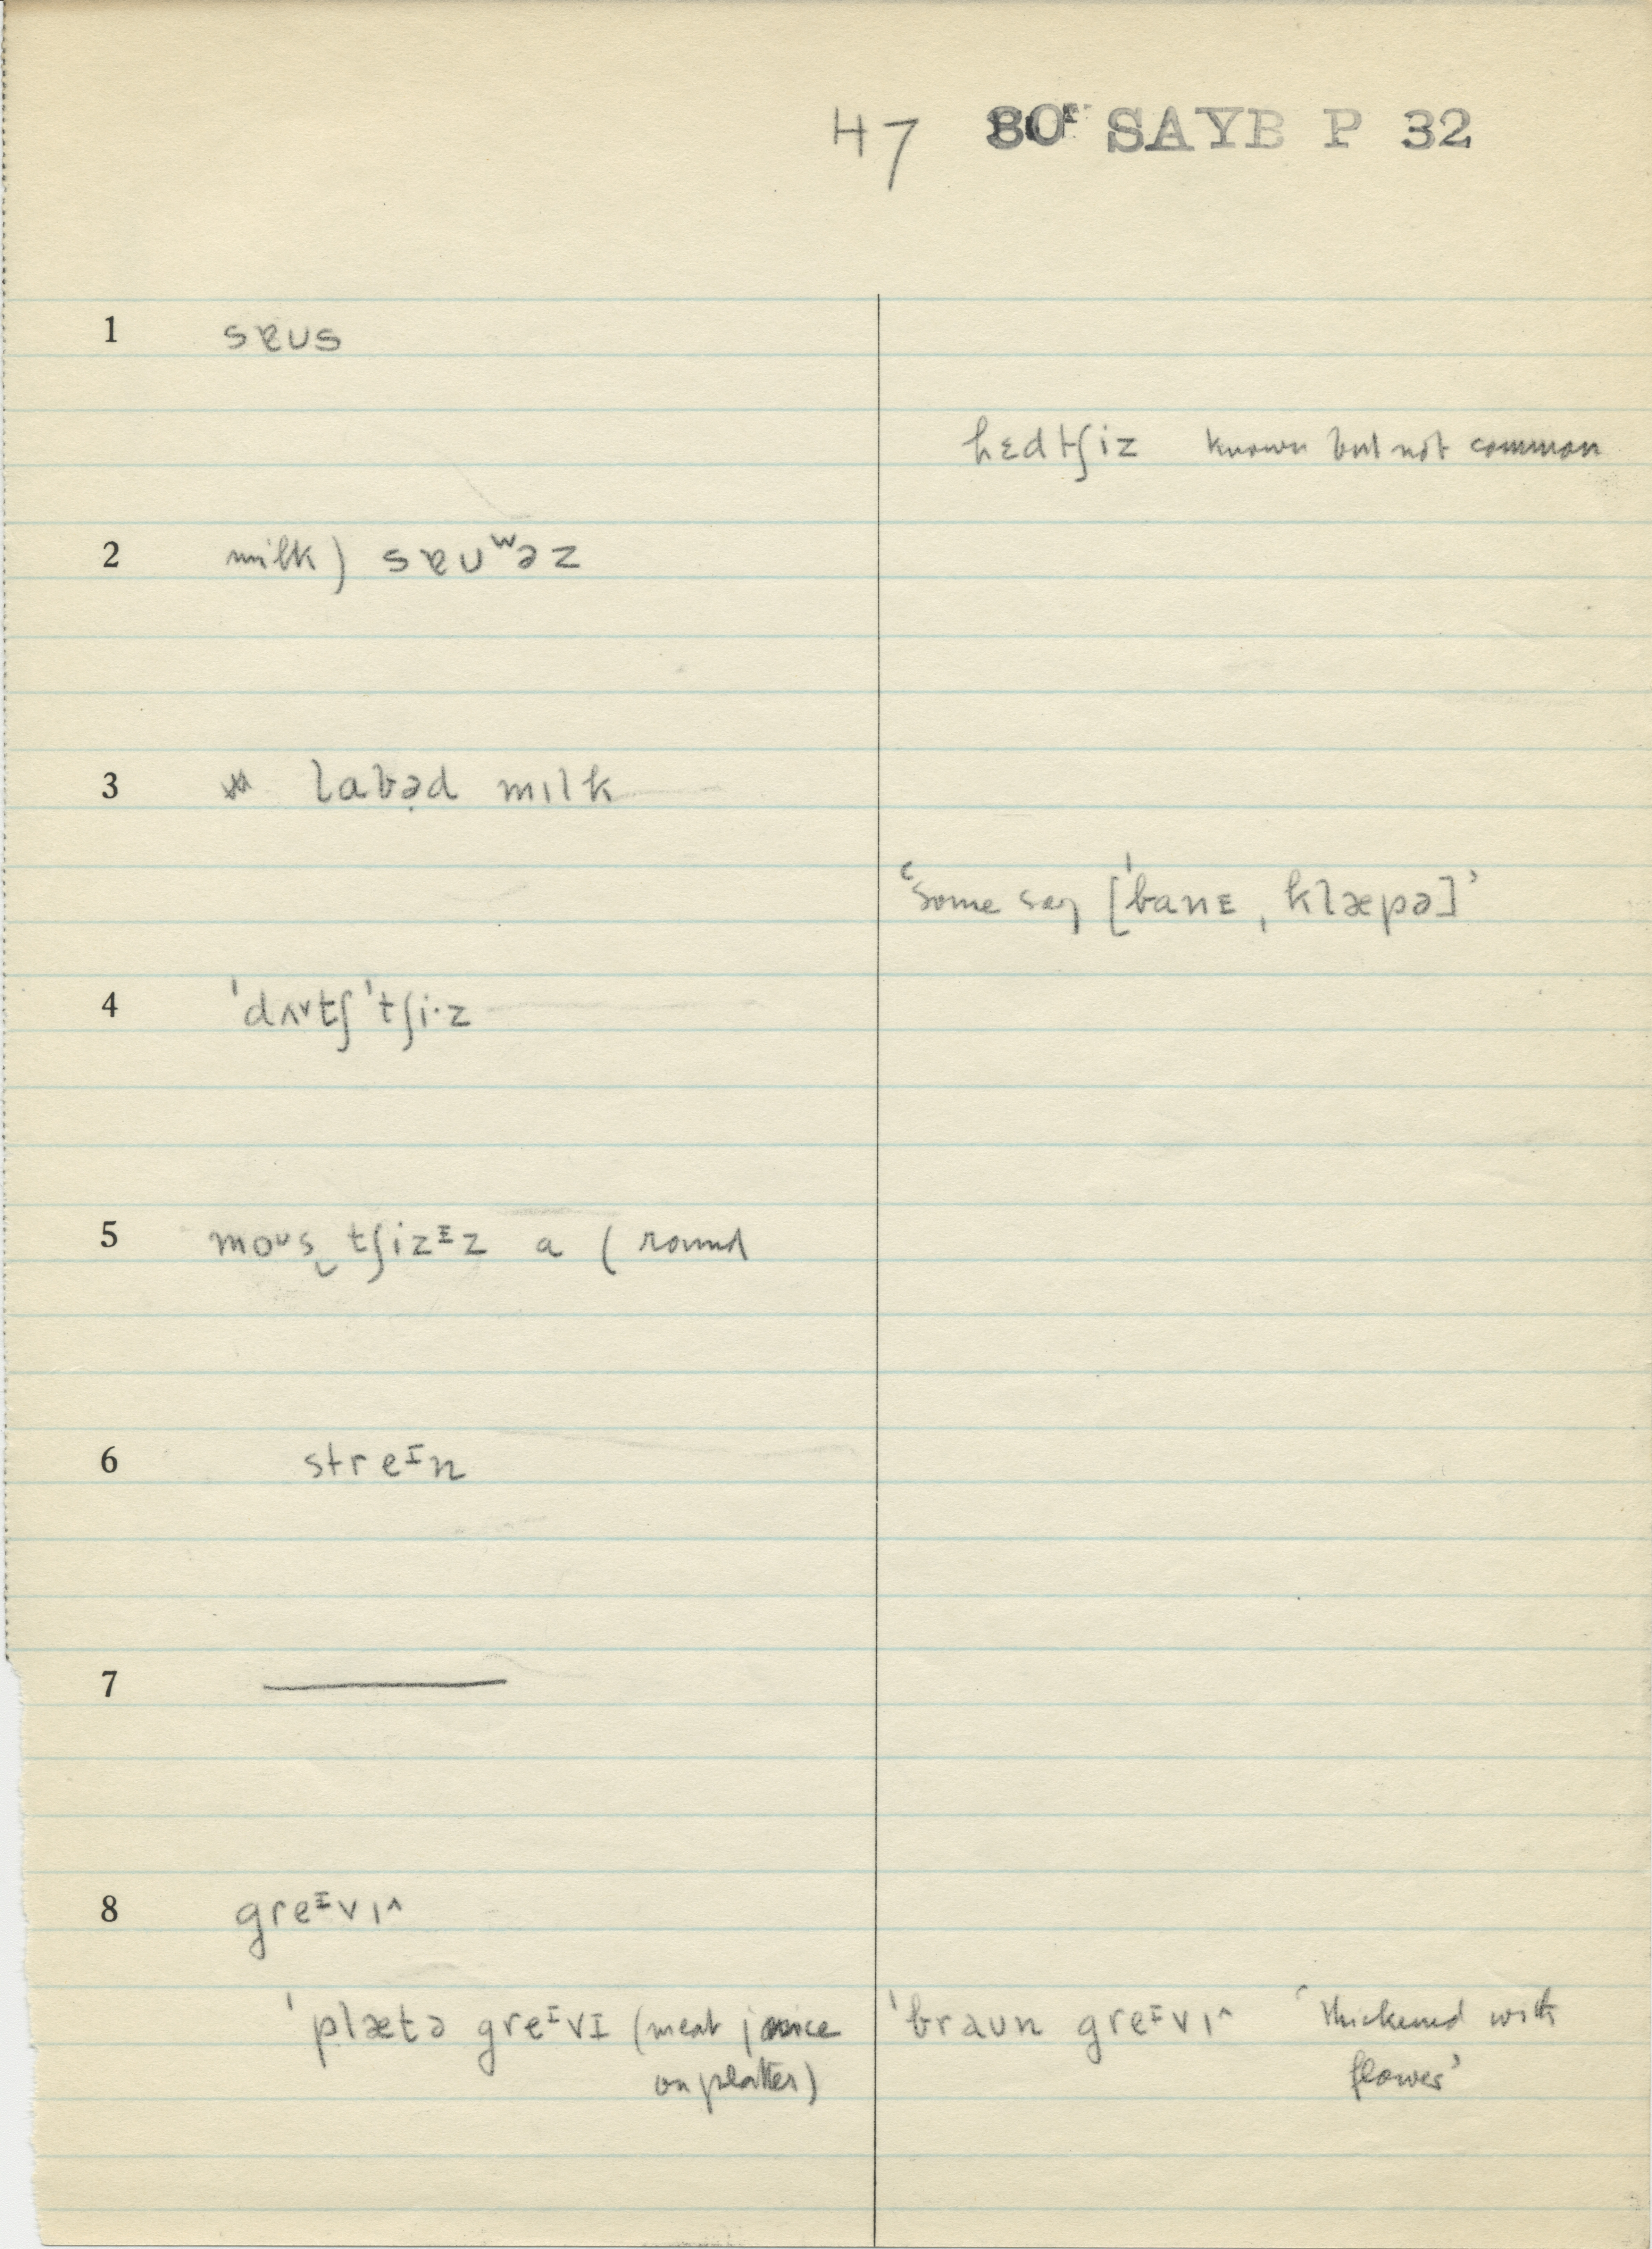 47 80ᴱ SAYB P 32
1 sɐus
hɛdtʃiz known but not common
2 milk) sɐuʷəz
3 labəd mɪlk
'some say [ˈbanɪ ˌklæpə]'
4 ˈdʌ˅tʃ ˈtʃi·z
5 moᶸs tʃizᴵz a ( round
6 streᴵn
7 ———
8 greᴵvɪ^
ˈplætə greᴵvɪ (meat juice ˈbraun greᴵvɪ^ 'thickened with
on platter) flower'